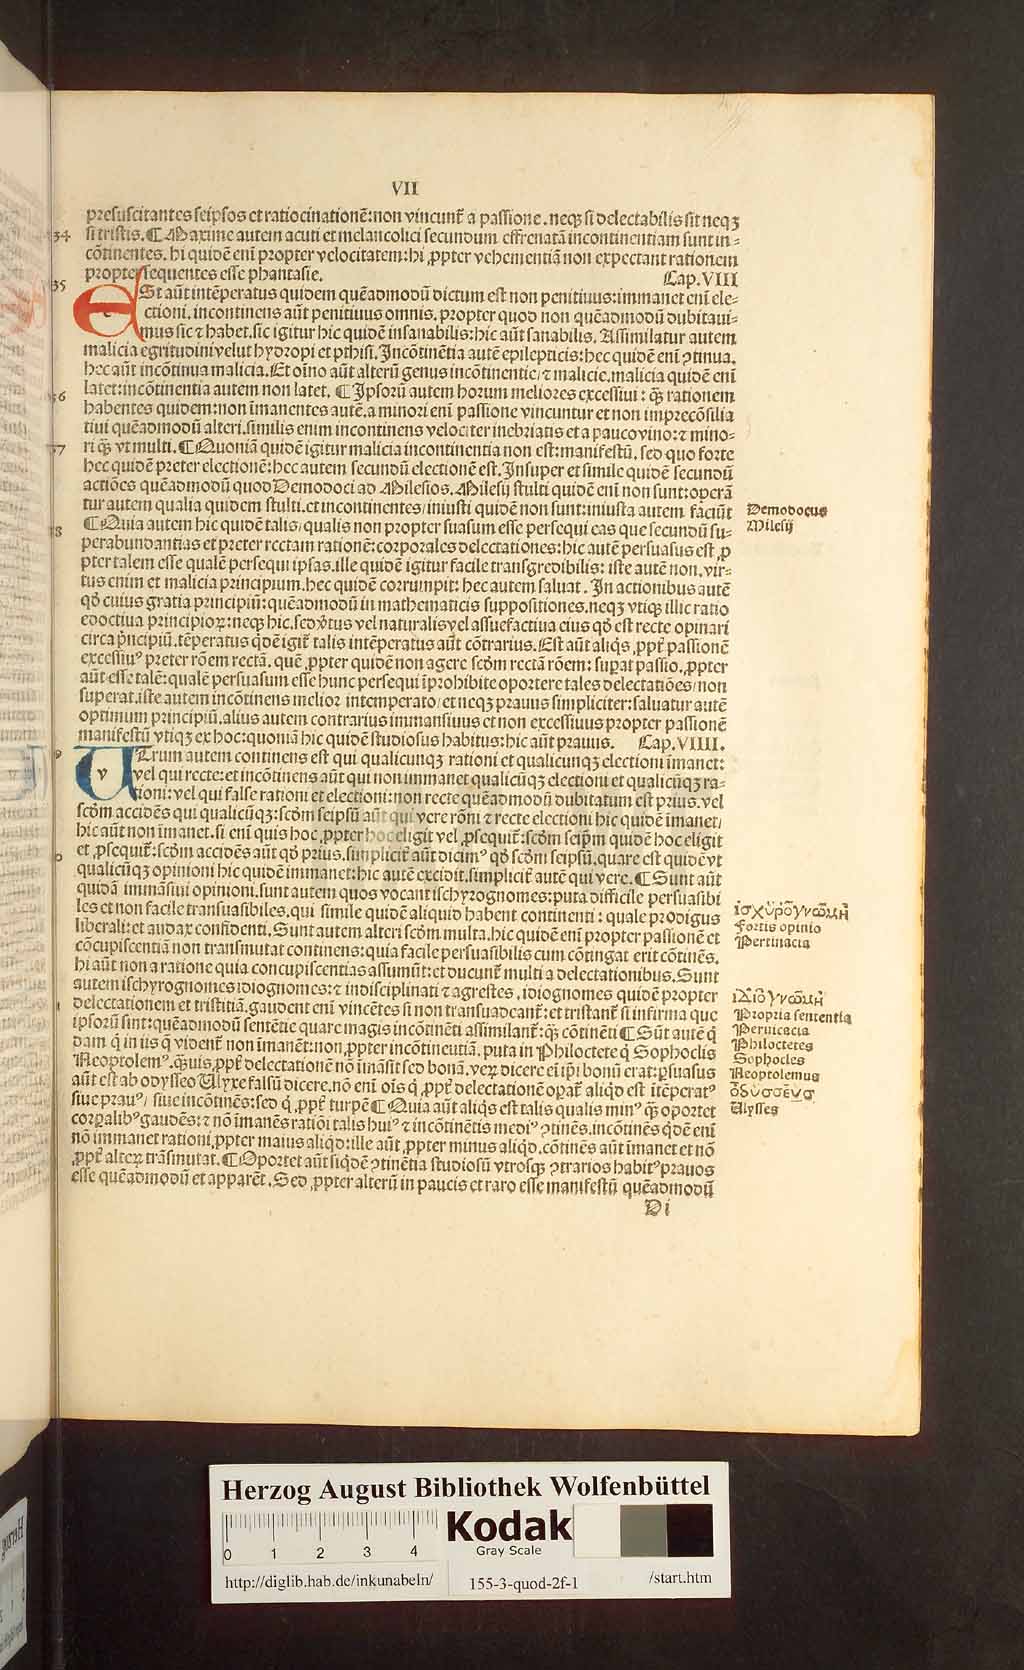 VII
presuscitantes seipsos et ratiocinationē: non vincunt̄ a passione. neqꝫ si delectabilis sit neqꝫ
34 si tristis. ¶ Maxime autem acuti et melancolici secundum effrenatā incontinentiam sunt in⸗
cōtinentes. hi quidē eni propter velocitatem: hi ꝓpter vehementiā non expectant rationem
propter sequentes esse phantasie. Cap. VIII
35 ESt aūt intēperatus quidem quēadmodū dictum est non penitiuus: immanet eni ele⸗
ctioni. incontinens aūt penitiuus omnis. propter quod non quēadmodū dubitaui⸗
mus sic ⁊ habet. sic igitur hic quidē insanabilis: hic aūt sanabilis. Assimilatur autem
malicia egritudini velut hydropi et pthisi. Incōtinētia autē epilepticis: hec quidē eni ꝯtinua.
hec aūt incōtinua malicia. Et oīno aūt alterū genus incōtinentie/ ⁊ malicie. malicia quidē eni
36 latet: incōtinentia autem non latet. ¶ Ipsorū autem horum meliores excessiui: qꝫ rationem
habentes quidem: non īmanentes autē. a minori eni passione vincuntur et non imprecōsilia
tiui quēadmodū alteri. similis enim incontinens velociter inebriatis et a pauco vino: ⁊ mino⸗
37 ri qꝫ vt multi. ¶ Quoniā quidē igitur malicia incontinentia non est: manifestū. sed quo forte
hec quidē preter electionē: hec autem secundū electionē est. Insuper et simile quidē secundū
actiōes quēadmodū quod Demodoci ad Milesios. Milesij stulti quidē eni non sunt: operā
tur autem qualia quidem stulti. et incontinentes/ iniusti quidē non sunt: iniusta autem faciūt
38 ¶ Quia autem hic quidē talis/ qualis non propter suasum esse persequi eas que secundū su⸗
perabundantias et preter rectam rationē: corporales delectationes: hic autē persuasus est ꝓ
pter talem esse qualē persequi ipsas. ille quidē igitur facile transgredibilis: iste autē non. vir⸗
tus enim et malicia principium. hec quidē corrumpit: hec autem saluat. In actionibus autē
qđ cuius gratia principiū: quēadmodū in mathematicis suppositiones. neqꝫ vtiqꝫ illic ratio
edoctiua principioꝝ: neqꝫ hic. sed v̓tus vel naturalis vel assuefactiua eius qđ est recte opinari
circa p̄ncipiū. tēperatus q̄dē igit̄ talis intēperatus aūt cōtrarius. Est aūt aliq̄s ꝓpt̄ passionē
excessiuꝰ preter rōem rectā. quē ꝓpter quidē non agere scđm rectā rōem: sup̄at passio. ꝓpter
aūt esse talē: qualē persuasum esse hunc persequi īprohibite oportere tales delectatiōes/ non
superat. iste autem incōtinens melior intemperato/ et neqꝫ prauus simpliciter: saluatur autē
optimum principiū. alius autem contrarius immansiuus et non excessiuus propter passionē
manifestū vtiqꝫ ex hoc: quoniā hic quidē studiosus habitus: hic aūt prauus. Cap. VIIII.
9 VTrum autem continens est qui qualicunqꝫ rationi et qualicunqꝫ electioni īmanet:
vel qui recte: et incōtinens aūt qui non immanet qualicūqꝫ electioni et qualicūqꝫ ra⸗
tioni: vel qui false rationi et electioni: non recte quēadmodū dubitatum est prius. vel
scđm accidēs qui qualicūqꝫ: scđm seipsū aūt qui vere rōni ⁊ recte electioni hic quidē īmanet/
hic aūt non īmanet. si eni quis hoc ꝓpter hoc eligit vel ꝓsequit̄: scđm seip̄m quidē hoc eligit
0 et ꝓsequit̄: scđm accidēs aūt qđ prius. simplicit̄ aūt dicimꝰ qđ scđm seipsū. quare est quidē vt
qualicūqꝫ opinioni hic quidē immanet: hic autē excidit. simplicit̄ autē qui vere. ¶ Sunt aūt
quidā immāsiui opinioni. sunt autem quos vocant ischyrognomes: puta difficile persuasibi
les et non facile transuasibiles. qui simile quidē aliquid habent continenti: quale prodigus
liberali: et audax confidenti. Sunt autem alteri scđm multa. hic quidē eni propter passionē et
cōcupiscentiā non transmutat continens: quia facile persuasibilis cum cōtingat erit cōtinēs.
hi aūt non a ratione quia concupiscentias assumūt: et ducunt̄ multi a delectationibus. Sunt
autem ischyrognomes idiognomes: ⁊ indisciplinati ⁊ agrestes. idiognomes quidē propter
delectationem et tristitiā. gaudent eni vincētes si non transuadeant̄: et tristant̄ si infirma que
ipsorū sint: quēadmodū sentētie quare magis incōtinēti assimilant̄: qꝫ cōtinēti ¶ Sūt autē q̄
dam q̄ in iis q̄ vident̄ non īmanēt: non ꝓpter incōtinentiā. puta in Philoctete q̄ Sophoclis
Neoptolemꝰ. q̄uis ꝓpt̄ delectationē nō īmāsit sed bonā. veꝝ dicere ei ip̄i bonū erat: ꝑsuasus
aūt est ab odysseo Ulyxe falsū dicere. nō eni oīs q̄ ꝓpt̄ delectationē opat̄ aliqđ est ītēperatꝰ
siue prauꝰ/ siue incōtinēs: sed q̄ ꝓpt̄ turpē ¶ Quia aūt aliq̄s est talis qualis minꝰ qꝫ oportet
corꝑalibꝰ gaudēs: ⁊ nō īmanēs ratiōi talis huiꝰ ⁊ incōtinētis mediꝰ ꝯtinēs. incōtinēs q̄dē eni
nō immanet rationi ꝓpter maius aliqđ: ille aūt ꝓpter minus aliqđ. cōtinēs aūt īmanet et nō
ꝓpt̄ alteꝝ trāsmutat. ¶ Oportet aūt siq̄dē ꝯtinētia studiosū vtrosqꝫ ꝯtrarios habitꝰ prauos
esse quēadmodū et apparēt. Sed ꝓpter alterū in paucis et raro esse manifestū quēadmodū
Di
Demodocus
Milesij
ἰσχυρογνώμη
Fortis opinio
Pertinacia
ἰδιογνώμη
Propria sententia
Peruicacia
Philoctetes
Sophocles
Neoptolemus
ὀδυσσεύς
Ulysses
Herzog August Bibliothek Wolfenbüttel
0 1 2 3 4
Kodak
Gray Scale
http://diglib.hab.de/inkunabeln/ 155-3-quod-2f-1 /start.htm